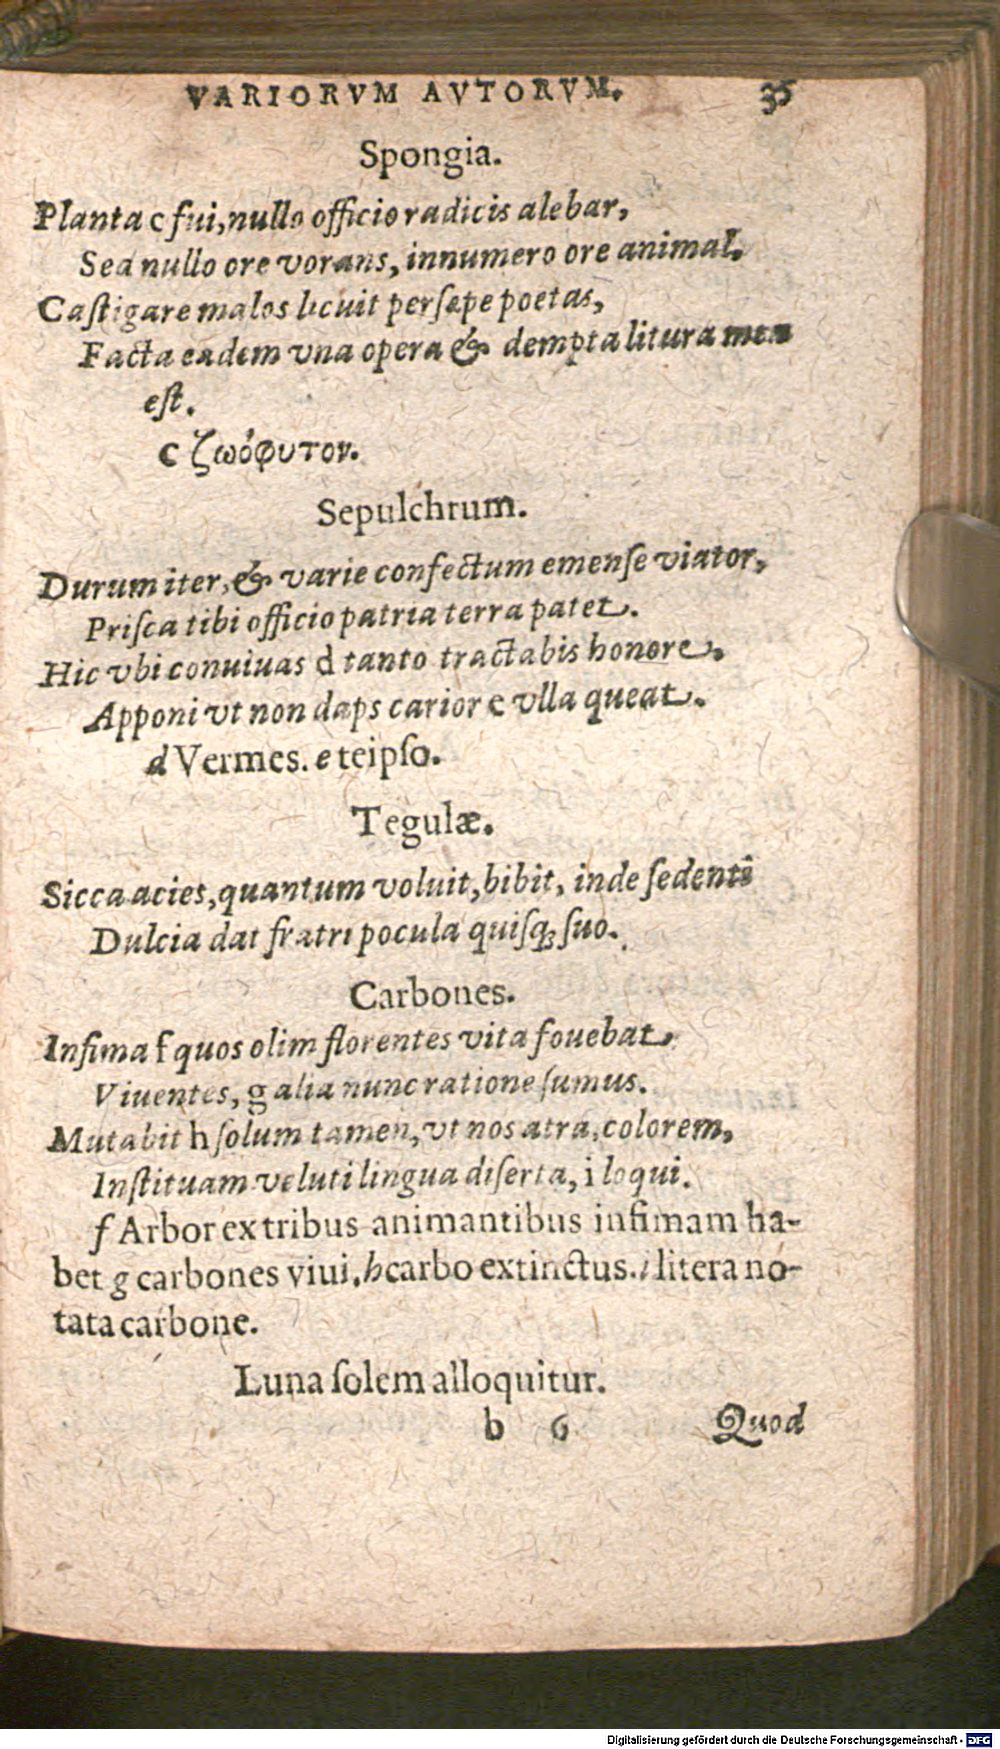 VARIORVM AVTORVM. 35
Spongia.
Planta c fui, nullo officio radicis alebar,
Sed nullo ore vorans, innumero ore animal.
Caſtigare malos licuit perſæpe poetas,
Facta eadem vna opera & dempta litura mea
eſt.
c ζωόφυτον.
Sepulchrum.
Durum iter, & varie confectum emenſe viator,
Priſca tibi officio patria terra patet.
Hic vbi conuiuas d tanto tractabis honore,
Apponi vt non daps carior e vlla queat.
d Vermes. e teipſo.
Tegulæ.
Sicca acies, quantum voluit, bibit, inde ſedenti
Dulcia dat fratri pocula quiſq; ſuo.
Carbones.
Infima f quos olim florentes vita fouebat,
Viuentes, g alia nunc ratione ſumus.
Mutabit h ſolum tamen, vt nos atra, colorem,
Inſtituam veluti lingua diſerta, i loqui.
f Arbor ex tribus animantibus infimam ha-
bet g carbones viui. h carbo extinctus. i litera no-
tata carbone.
Luna ſolem alloquitur.
b 6 Quod
Digitalisierung gefördert durch die Deutsche Forschungsgemeinschaft - DFG